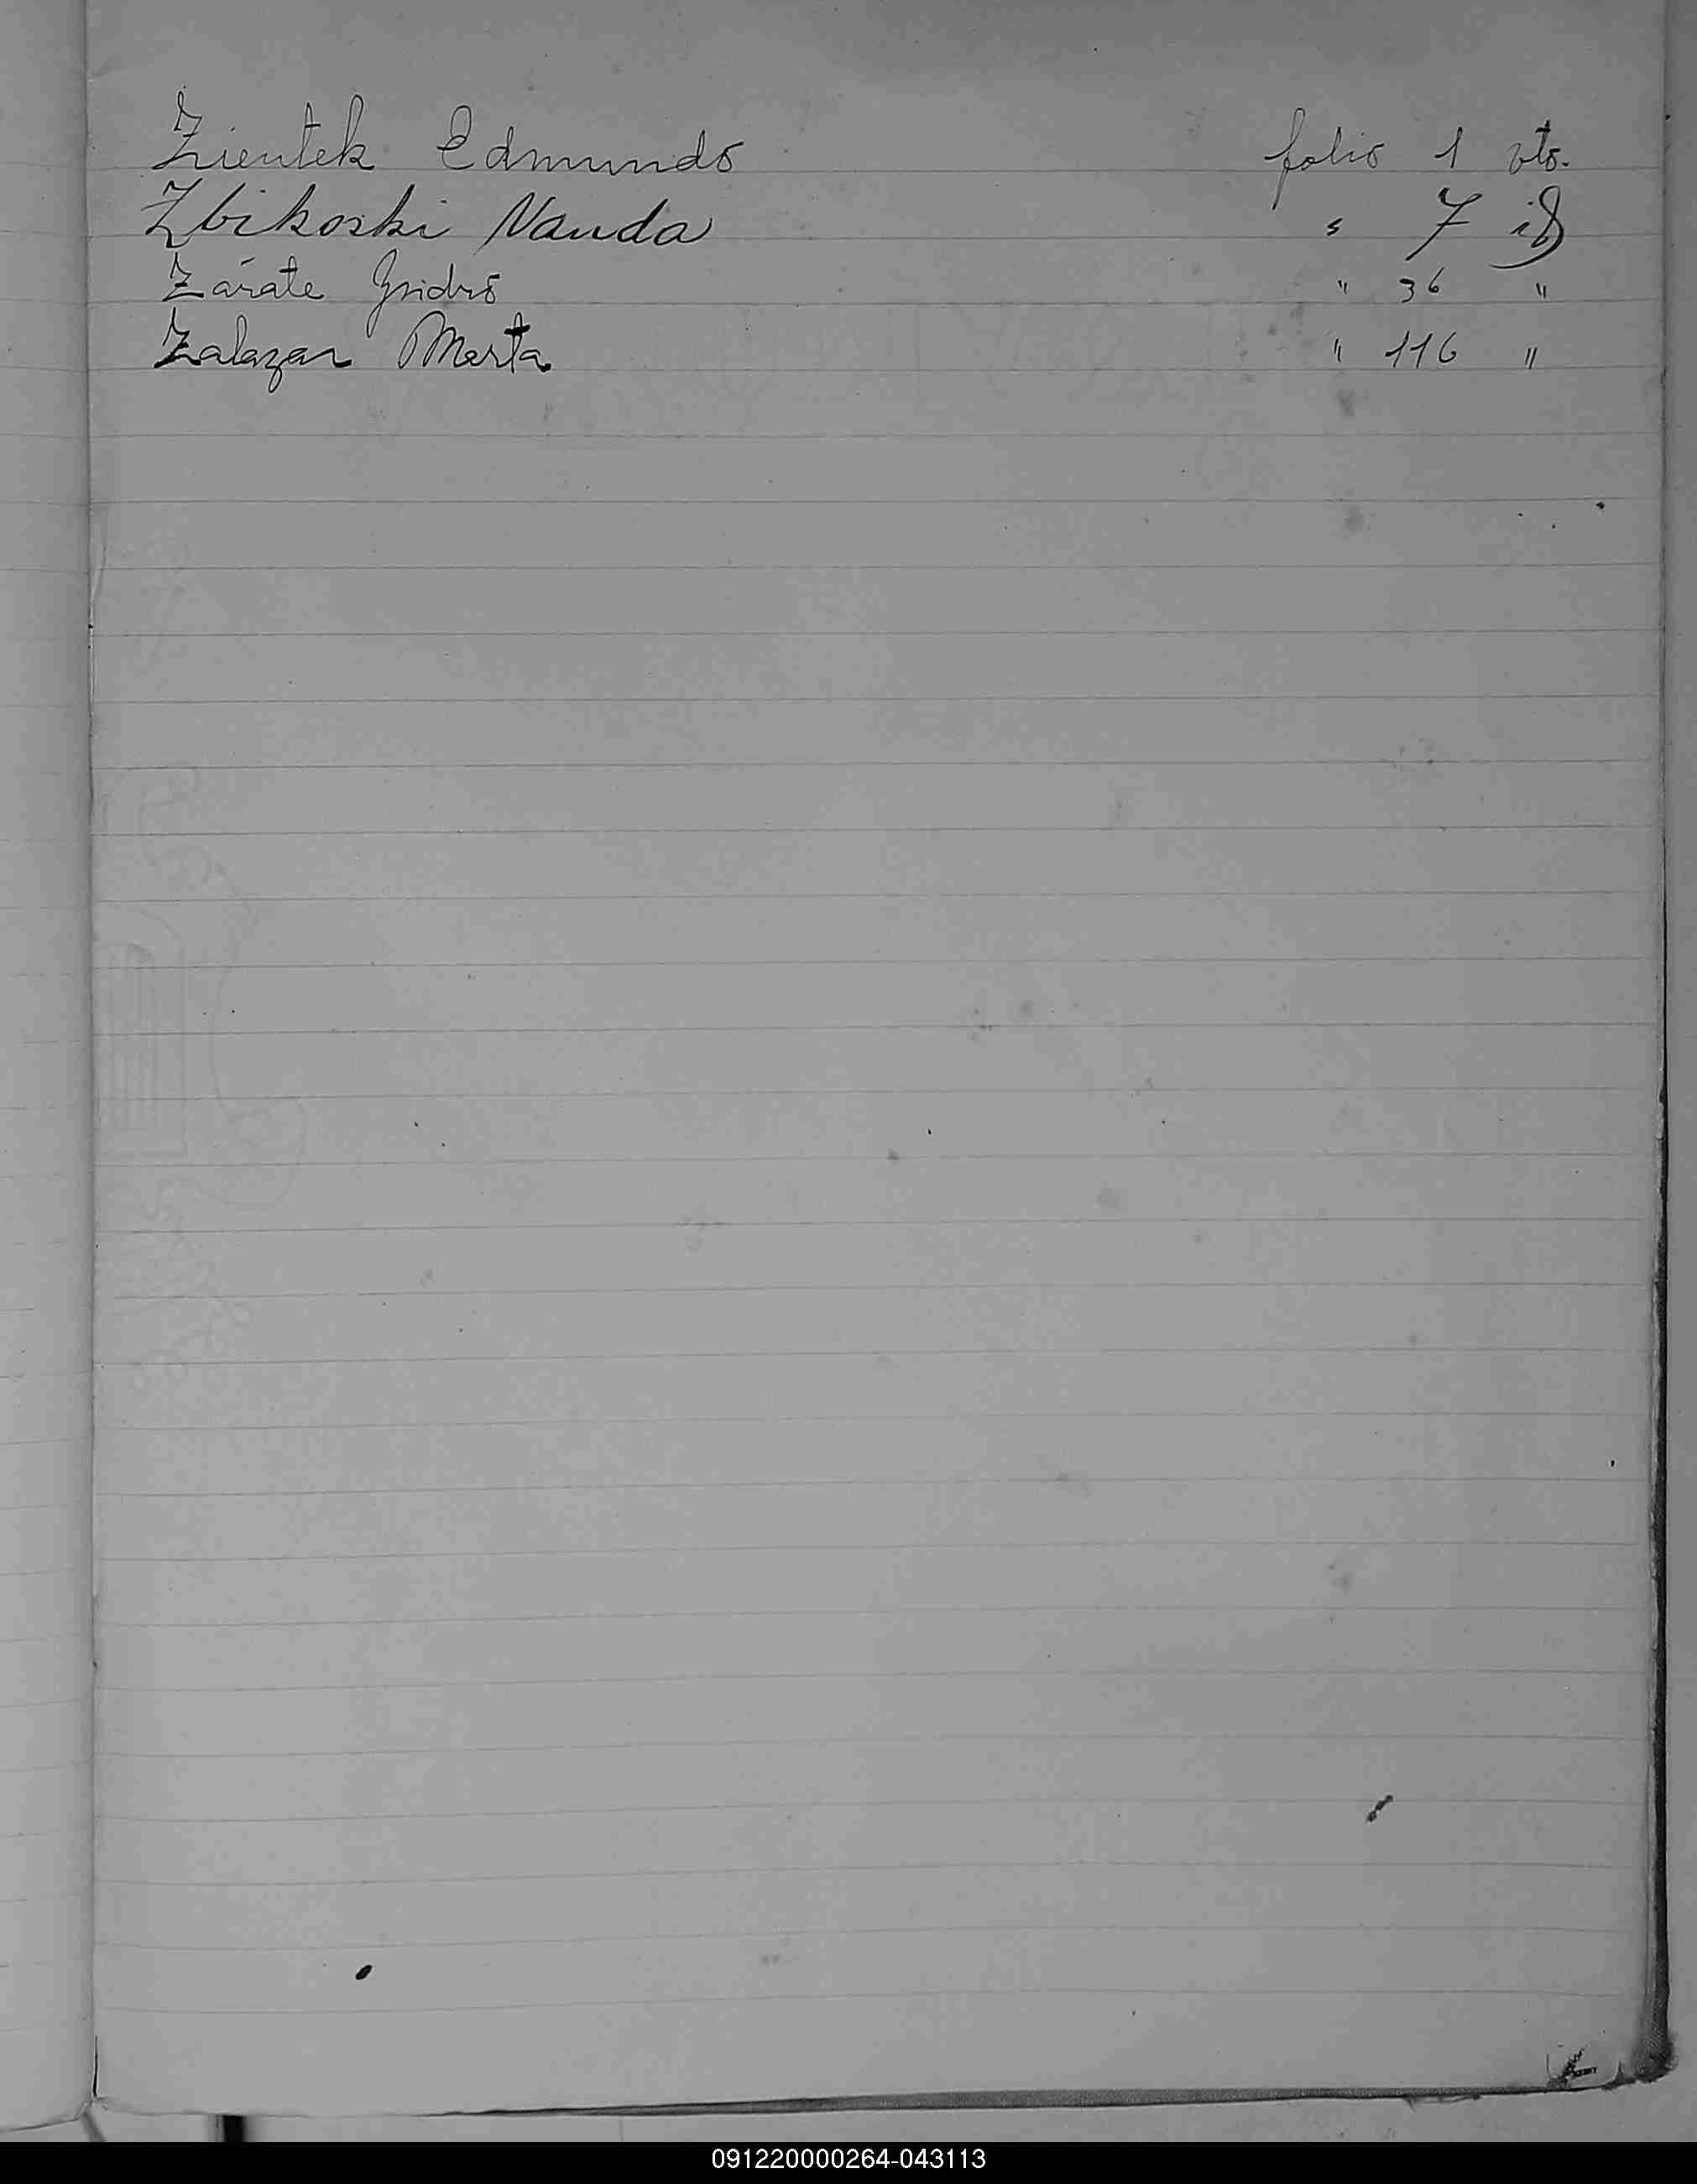 Zientek Edmundo folio 1 vto.
Zbikoski Nanda " 7 id
Zárate Ysidro " 36 "
Zalazar Marta " 116 "
091220000264-043113